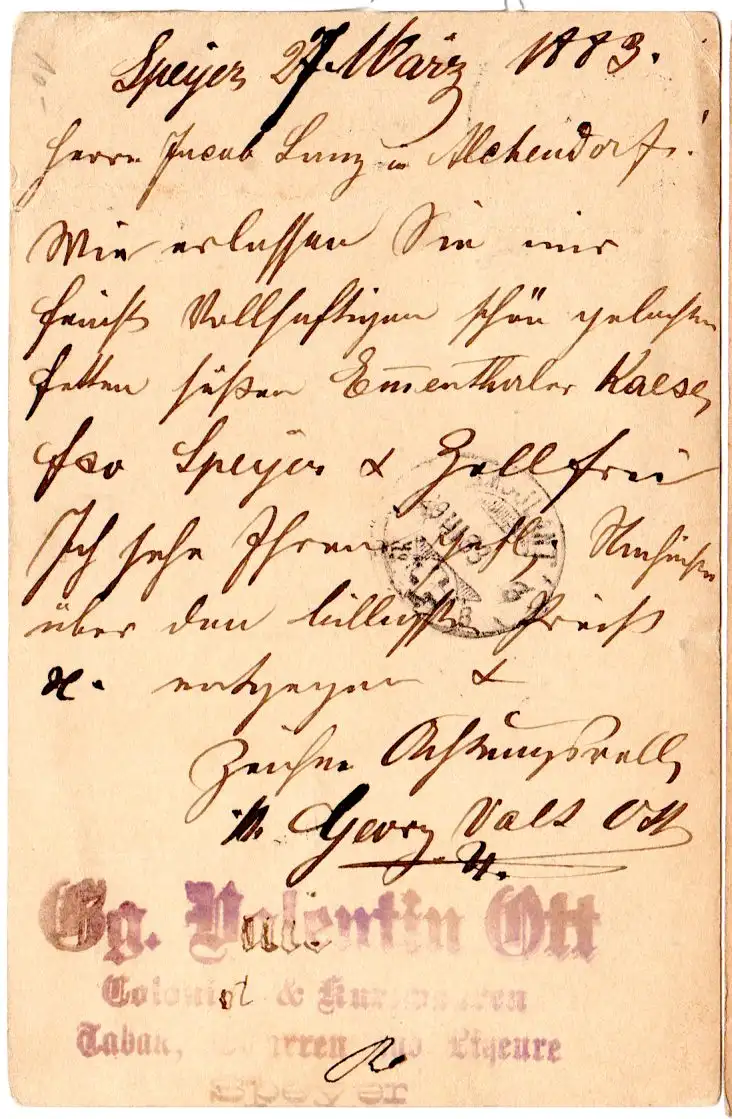 Speyer 27 März 1883.
Herrn Jacob Lanz in Alchendorf!
Wie erlassen Sie mir
feinst Vollsaftigen schön gelochten
fetten süßen Em̅enthaler Kaese,
fco Speyer & Zollfrei
Ich sehe Ihren gefl. Nachrichten
über den billigsten Preiß
entgegen &
Zeichne Achtungsvoll
Georg Valt Ott
Gg. Valentin Ott
Colonial & Kurzwaaren
Tabak, Cigarren und Liqeure
Speyer